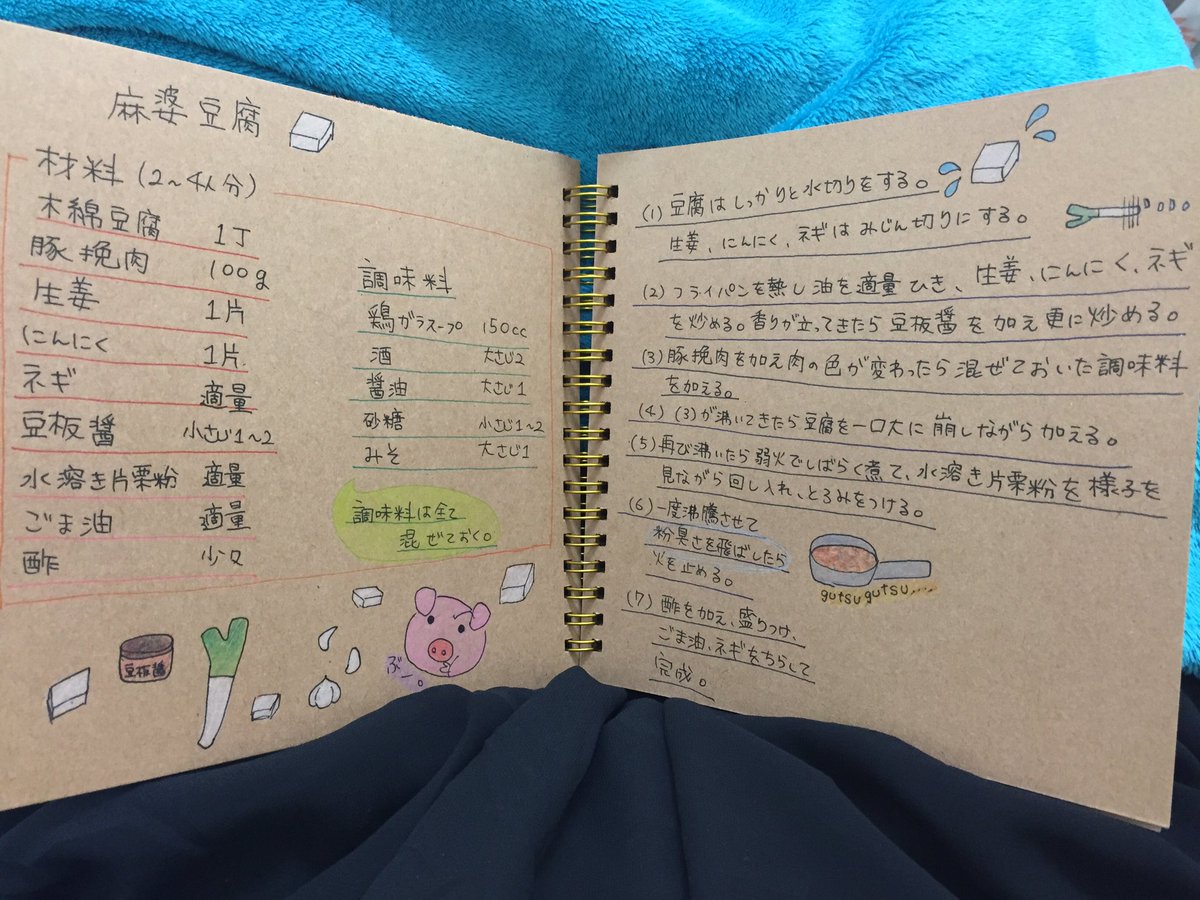 麻婆豆腐
材料(2~4人分)
木綿豆腐 1丁
豚挽肉 100g
生姜 1片
にんにく 1片
ネギ 適量
豆板醤 小さじ1~2
水溶き片栗粉 適量
ごま油 適量
酢 少々
調味料
鶏ガラスープ 150cc
酒 大さじ2
醤油 大さじ1
砂糖 小さじ1~2
みそ 大さじ1
調味料は全て
混ぜておく。
豆板醤
ブー。
(1) 豆腐はしっかりと水切りをする。
生姜、にんにく、ネギはみじん切りにする。
(2) フライパンを熱し油を適量ひき、生姜、にんにく、ネギ
を炒める。香りが立ってきたら豆板醤を加え更に炒める。
(3) 豚挽肉を加え肉の色が変わったら混ぜておいた調味料
を加える。
(4) (3)が沸いてきたら豆腐を一口大に崩しながら加える。
(5) 再び沸いたら弱火でしばらく煮て、水溶き片栗粉を様子を
見ながら回し入れ、とろみをつける。
(6) 一度沸騰させて
粉臭さを飛ばしたら
火を止める。
gutsu gutsu....
(7) 酢を加え、盛りつけ、
ごま油、ネギをちらして
完成。